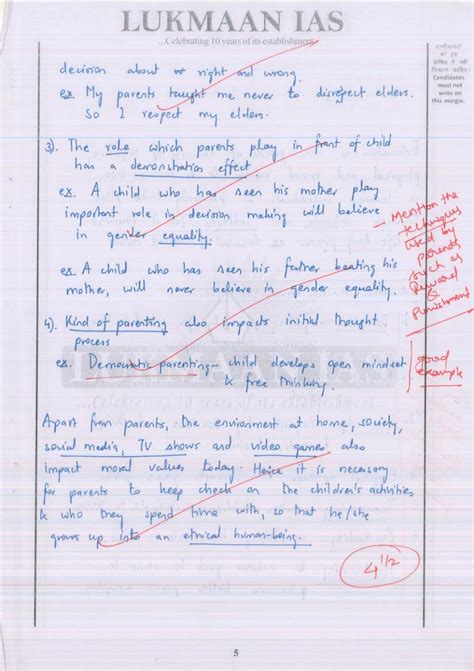 LUKMAAN IAS
...Celebrating 10 years of its establishment
उम्मीदवारों को इस हाशिए में नहीं लिखना चाहिए।
Candidates must not write on this margin.
decision about right and wrong.
ex. My parents taught me never to disrespect elders.
So I respect my elders.
3). The role which parents play in front of child
has a demonstration effect
ex. A child who has seen his mother play
important role in decision making will believe
in gender equality.
- Mention the techniques used by parents such as Reward & Punishment
ex. A child who has seen his father beating his
mother, will never believe in gender equality.
4). Kind of parenting also impacts initial thought
process
ex. Democratic parenting - child develops open mindset
& free thinking.
good example
LUKMAAN IAS
...Celebrating 10 years of its establishment
Apart from parents, the environment at home, society,
social media, TV shows and video games also
impact moral values today. Hence it is necessary
for parents to keep check on the children's activities
& who they spend time with, so that he/she
grows up into an ethical human-being.
4 1/2
5